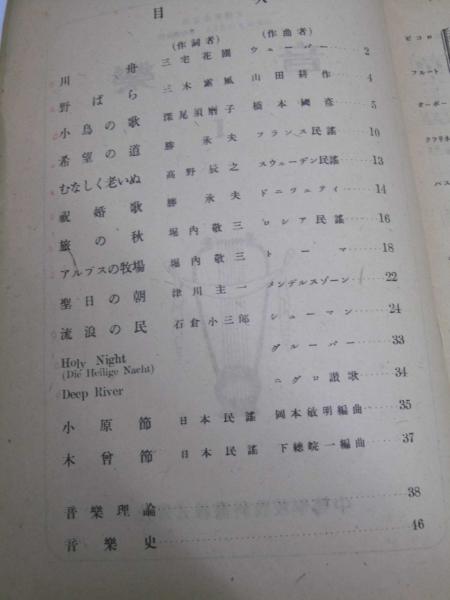 目 次
(作詞者) (作曲者)
川舟 三宅花圃 ウェーバー 2
野ばら 三木露風 山田耕作 4
小鳥の歌 深尾須磨子 橋本國彦 5
希望の道 勝承夫 フランス民謠 10
むなしく老いぬ 高野辰之 スウェーデン民謠 13
祝婚歌 勝承夫 ドニツェティ 14
旅の秋 堀内敬三 ロシア民謠 16
アルプスの牧場 堀内敬三 トーマ 18
聖日の朝 津川主一 メンデルスゾーン 22
流浪の民 石倉小三郎 シューマン 24
Holy Night
(Die Heilige Nacht) グルーバー 33
Deep River ニグロ讃歌 34
小原節 日本民謠 岡本敏明編曲 35
木曾節 日本民謠 下總皖一編曲 37
音樂理論 38
音樂史 46
ピコロ
フルート
オーボー
クラリネ
バス